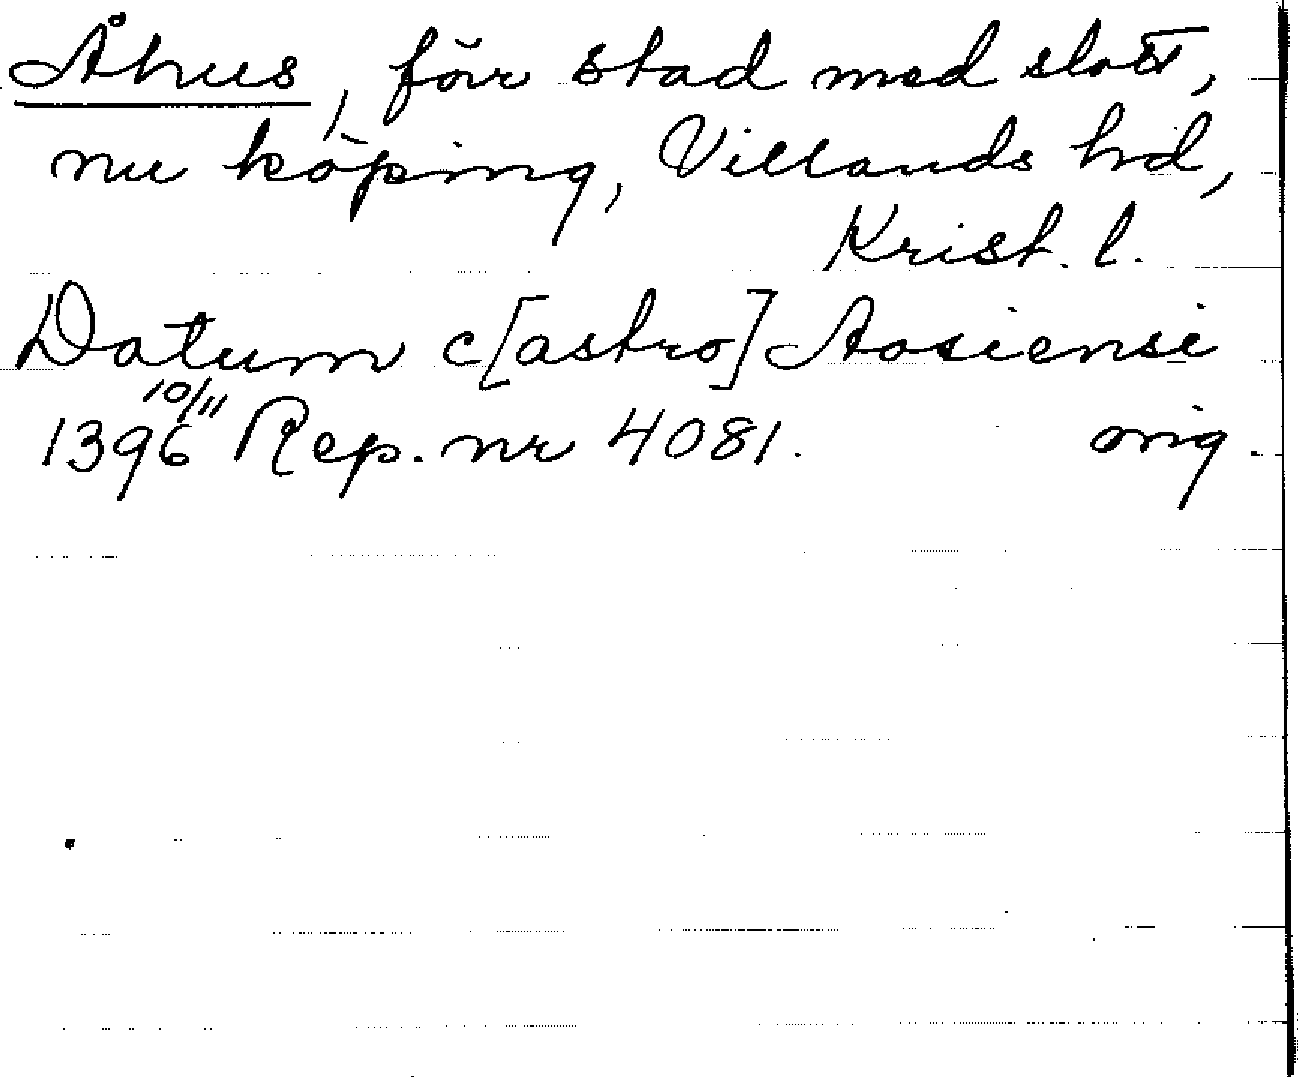 Åhus, förr stad med slott,
nu köping, Villands hd,
Krist. l.
Datum c[astro] Aosiensi
10/11
1396 Rep. nr 4081. orig.